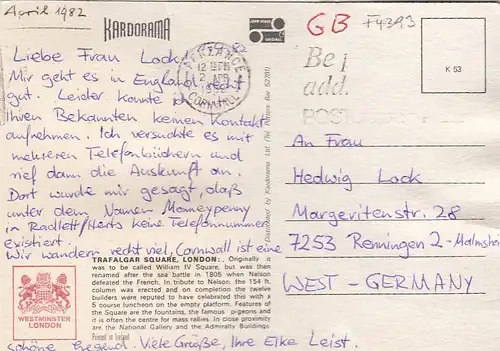 April 1982
KARDORAMA
JOHN HINDE
ORIGINAL
GB
F4393
K 53
PENZANCE
12 15 PM
2 APR
CORNWALL
Be
add
POST
Liebe Frau Lock,
Mir geht es in England sehr
gut. Leider konnte ich
Ihren Bekannten keinen Kontakt
aufnehmen. Ich versuchte es mit
mehreren Telefonbüchern und
rief dann die Auskunft an.
Dort wurde mir gesagt, daß
unter dem Namen Momeypenny
in Radlett/Herts keine Telefonnummer
existiert.
Wir wandern recht viel, Cornwall ist eine
TRAFALGAR SQUARE, LONDON: Originally it
was to be called William IV Square, but was then
renamed after the sea battle in 1805 when Nelson
defeated the French. In tribute to Nelson, the 154 ft.
column was erected and on completion the twelve
builders were reputed to have celebrated this with a
5 course luncheon on the empty platform. Features of
the Square are the fountains, the famous pigeons and
it is often the centre for mass rallies. In close proximity
are the National Gallery and the Admiralty Buildings
Printed in Ireland
WESTMINSTER
LONDON
schöne Gegend. Viele Grüße, Ihre Elke Leist.
Distributed by Kardorama Ltd. (Tel. Potters Bar 52781)
An Frau
Hedwig Lock
Margeritenstr. 28
7253 Renningen 2 - Malmsheim
WEST - GERMANY